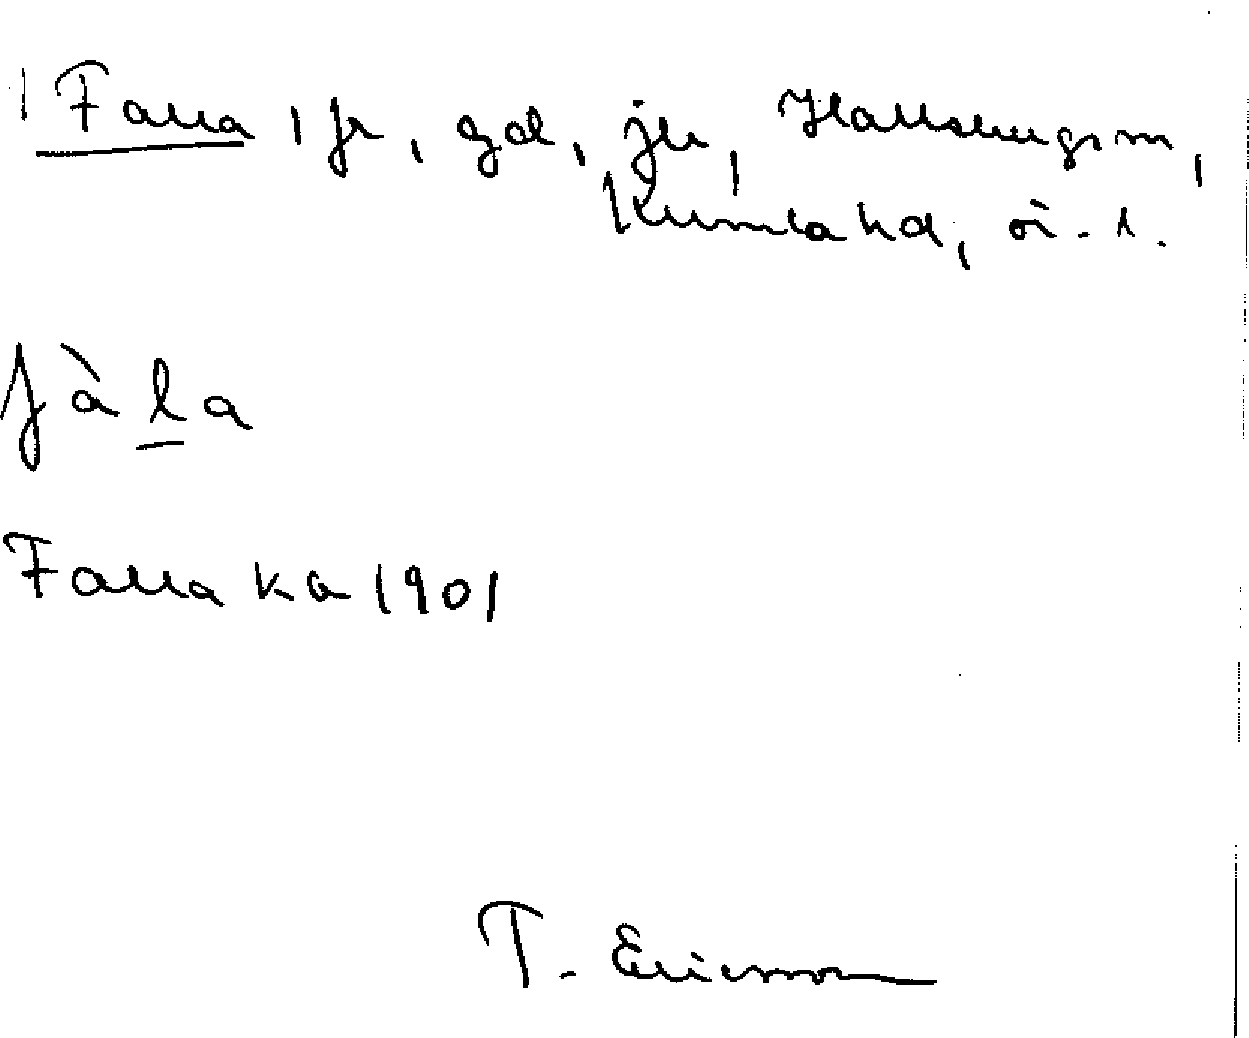 Falla, fr, gd, ju, Hallsbergs m,
Kumla hd, ö. l.
fàla
Falla ka 1901
T. Ericsson